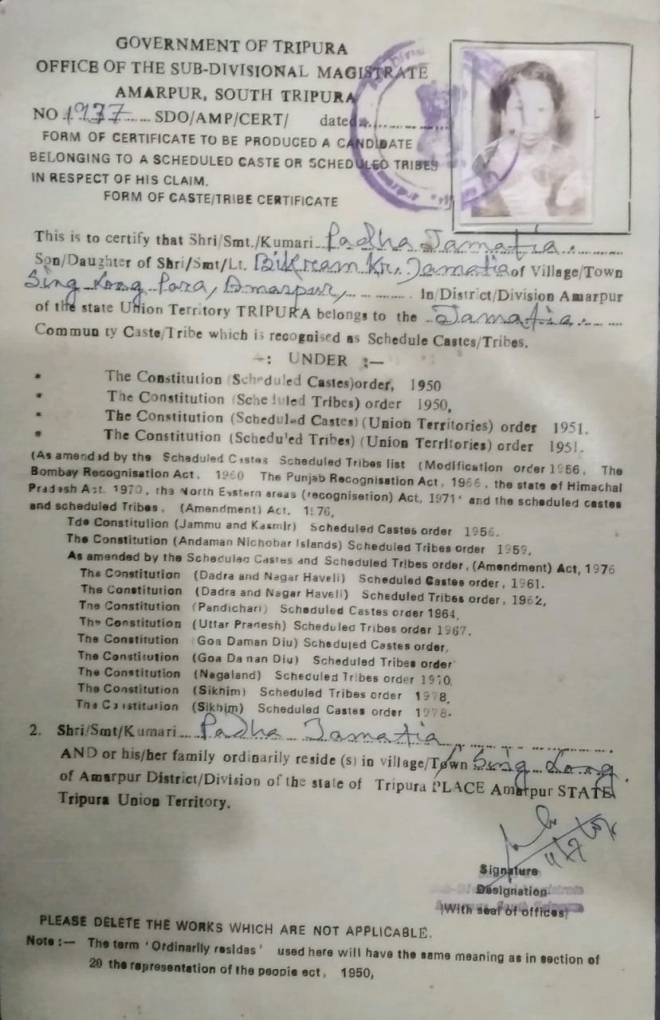 GOVERNMENT OF TRIPURA
OFFICE OF THE SUB-DIVISIONAL MAGISTRATE
AMARPUR, SOUTH TRIPURA
NO 1977 ..... SDO/AMP/CERT/ dated..............
FORM OF CERTIFICATE TO BE PRODUCED A CANDIDATE
BELONGING TO A SCHEDULED CASTE OR SCHEDULED TRIBES
IN RESPECT OF HIS CLAIM.
FORM OF CASTE/TRIBE CERTIFICATE
This is to certify that Shri/Smt./Kumari Padha Jamatia
Son/Daughter of Shri/Smt/Lt. Bikream Kr. Jamatia of Village/Town
Sing Long Para, Amarpur, .......... In/District/Division Amarpur
of the state Union Territory TRIPURA belongs to the Jamatia
Commun ty Caste/Tribe which is recognised as Schedule Castes/Tribes.
-: UNDER :-
* The Constitution (Scheduled Castes)order, 1950
* The Constitution (Scheduled Tribes) order 1950,
* The Constitution (Scheduled Castes) (Union Territories) order 1951.
* The Constitution (Scheduled Tribes) (Union Territories) order 1951.
(As amended by the Scheduled Castes Scheduled Tribes list (Modification order 1956, The
Bombay Recognisation Act. 1960 The Punjab Recognisation Act, 1966, the state of Himachal
Pradesh Act. 1970, the North Eastern areas (recognisetion) Act, 1971' and the scheduled castes
and scheduled Tribes, (Amendment) Act. 1976,
Tde Constitulion (Jammu and Kasmir) Scheduled Castes order 1956.
The Constitution (Andaman Nichobar Islands) Scheduled Tribes order 1959,
As amended by the Scheduled Castes and Scheduled Tribes order, (Amendment) Act, 1976
The Constitution (Dadra and Nagar Haveli) Scheduled Castes order, 1961.
The Constitution (Dadra and Nagar Haveli) Scheduled Tribes order, 1962,
The Constitution (Pandichari) Scheduled Castes order 1964,
The Constitution (Uttar Pradesh) Scheduled Tribes order 1967.
The Constitution (Goa Daman Diu) Scheduled Castes order,
The Constitution (Goa Daman Diu) Scheduled Tribes order
The Constitution (Nagaland) Scheduled Tribes order 1970,
The Constitution (Sikhim) Scheduled Tribes order 1978,
The Constitution (Sikhim) Scheduled Castes order 1978.
2. Shri/Smt/Kumari Padha Jamatia
AND or his/her family ordinarily reside (s) in village/Town Sing Long
of Amarpur District/Division of the state of Tripura PLACE Amarpur STATE
Tripura Union Territory.
Signature
Designation
(With seal of offices)
PLEASE DELETE THE WORKS WHICH ARE NOT APPLICABLE.
Note :- The term 'Ordinarily resides' used here will have the same meaning as in section of
20 the representation of the people act, 1950,